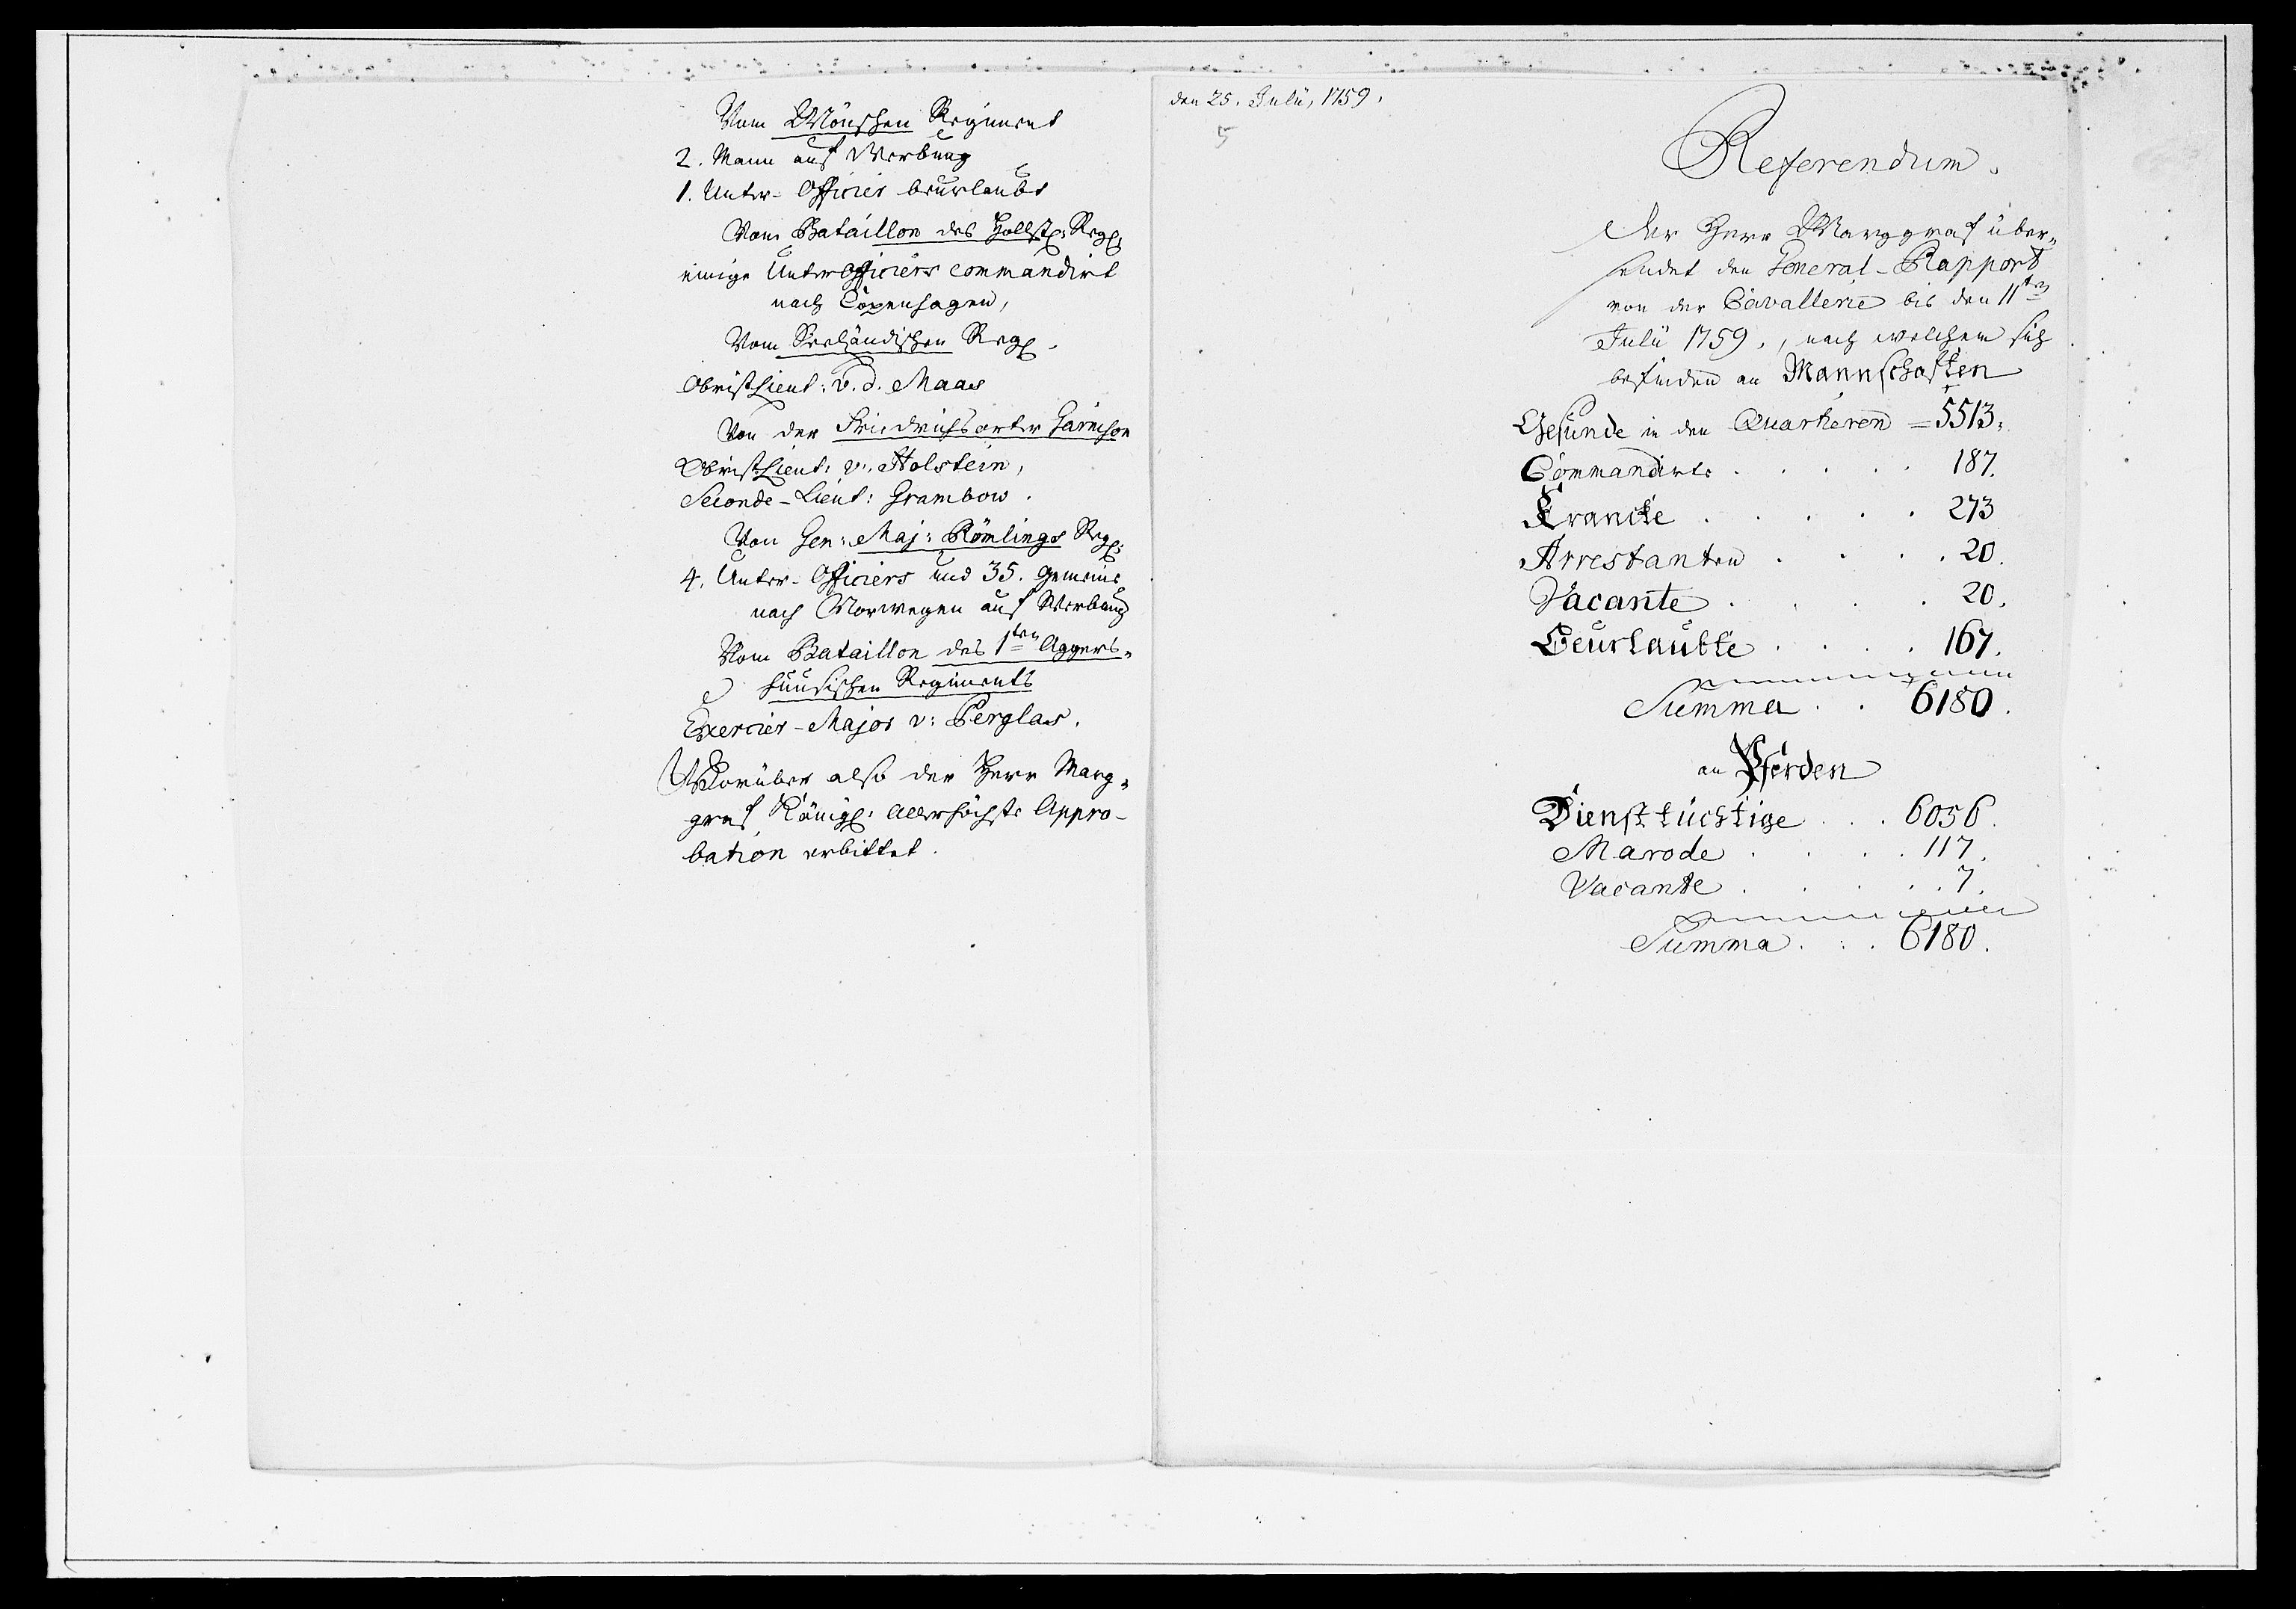 Vom Mönschen Regiment
2. Mann auf Werbung
1. Unter-Officier beurlaubt
Vom Bataillon des Hollst: Reg:
einige Unterofficiers commandirt
nach Copenhagen,
Vom Seeländischen Reg.
ObristLieut: v. d. Maas
Von der Friedrichsorter Garnison
ObristLieut: v. Holstein,
Seconde-Lieut: Grambow.
Von Gen: Maj: Römlings Reg:
4. Unter-Officiers und 35. Gemeine
nach Norwegen auf Werbung
Vom Bataillon des 1sten Aggers-
huusischen Regiments
Exercier-Major v: Perglas.
Worüber also der Herr Marg-
graf Königl: allerhöchste Appro-
bation erbittet.
den 25. Julii, 1759.
5
Referendum.
Der Herr Marggraf über-
sendet den General-Rapport
von der Cavallerie bis den 11ten
Julii 1759., nach welchem sich
befinden an Mannschafften
Gesunde in den Quartieren = 5513.
Commandirte . . . . . 187.
Krancke . . . . . 273
Arrestanten . . . . 20.
Vacante . . . . 20.
Beurlaubte . . . . 167.
Summa . . 6180.
an Pferden
Diensttüchtige . . . 6056.
Marode . . . . 117.
Vacante . . . . . 7.
Summa . . . 6180.